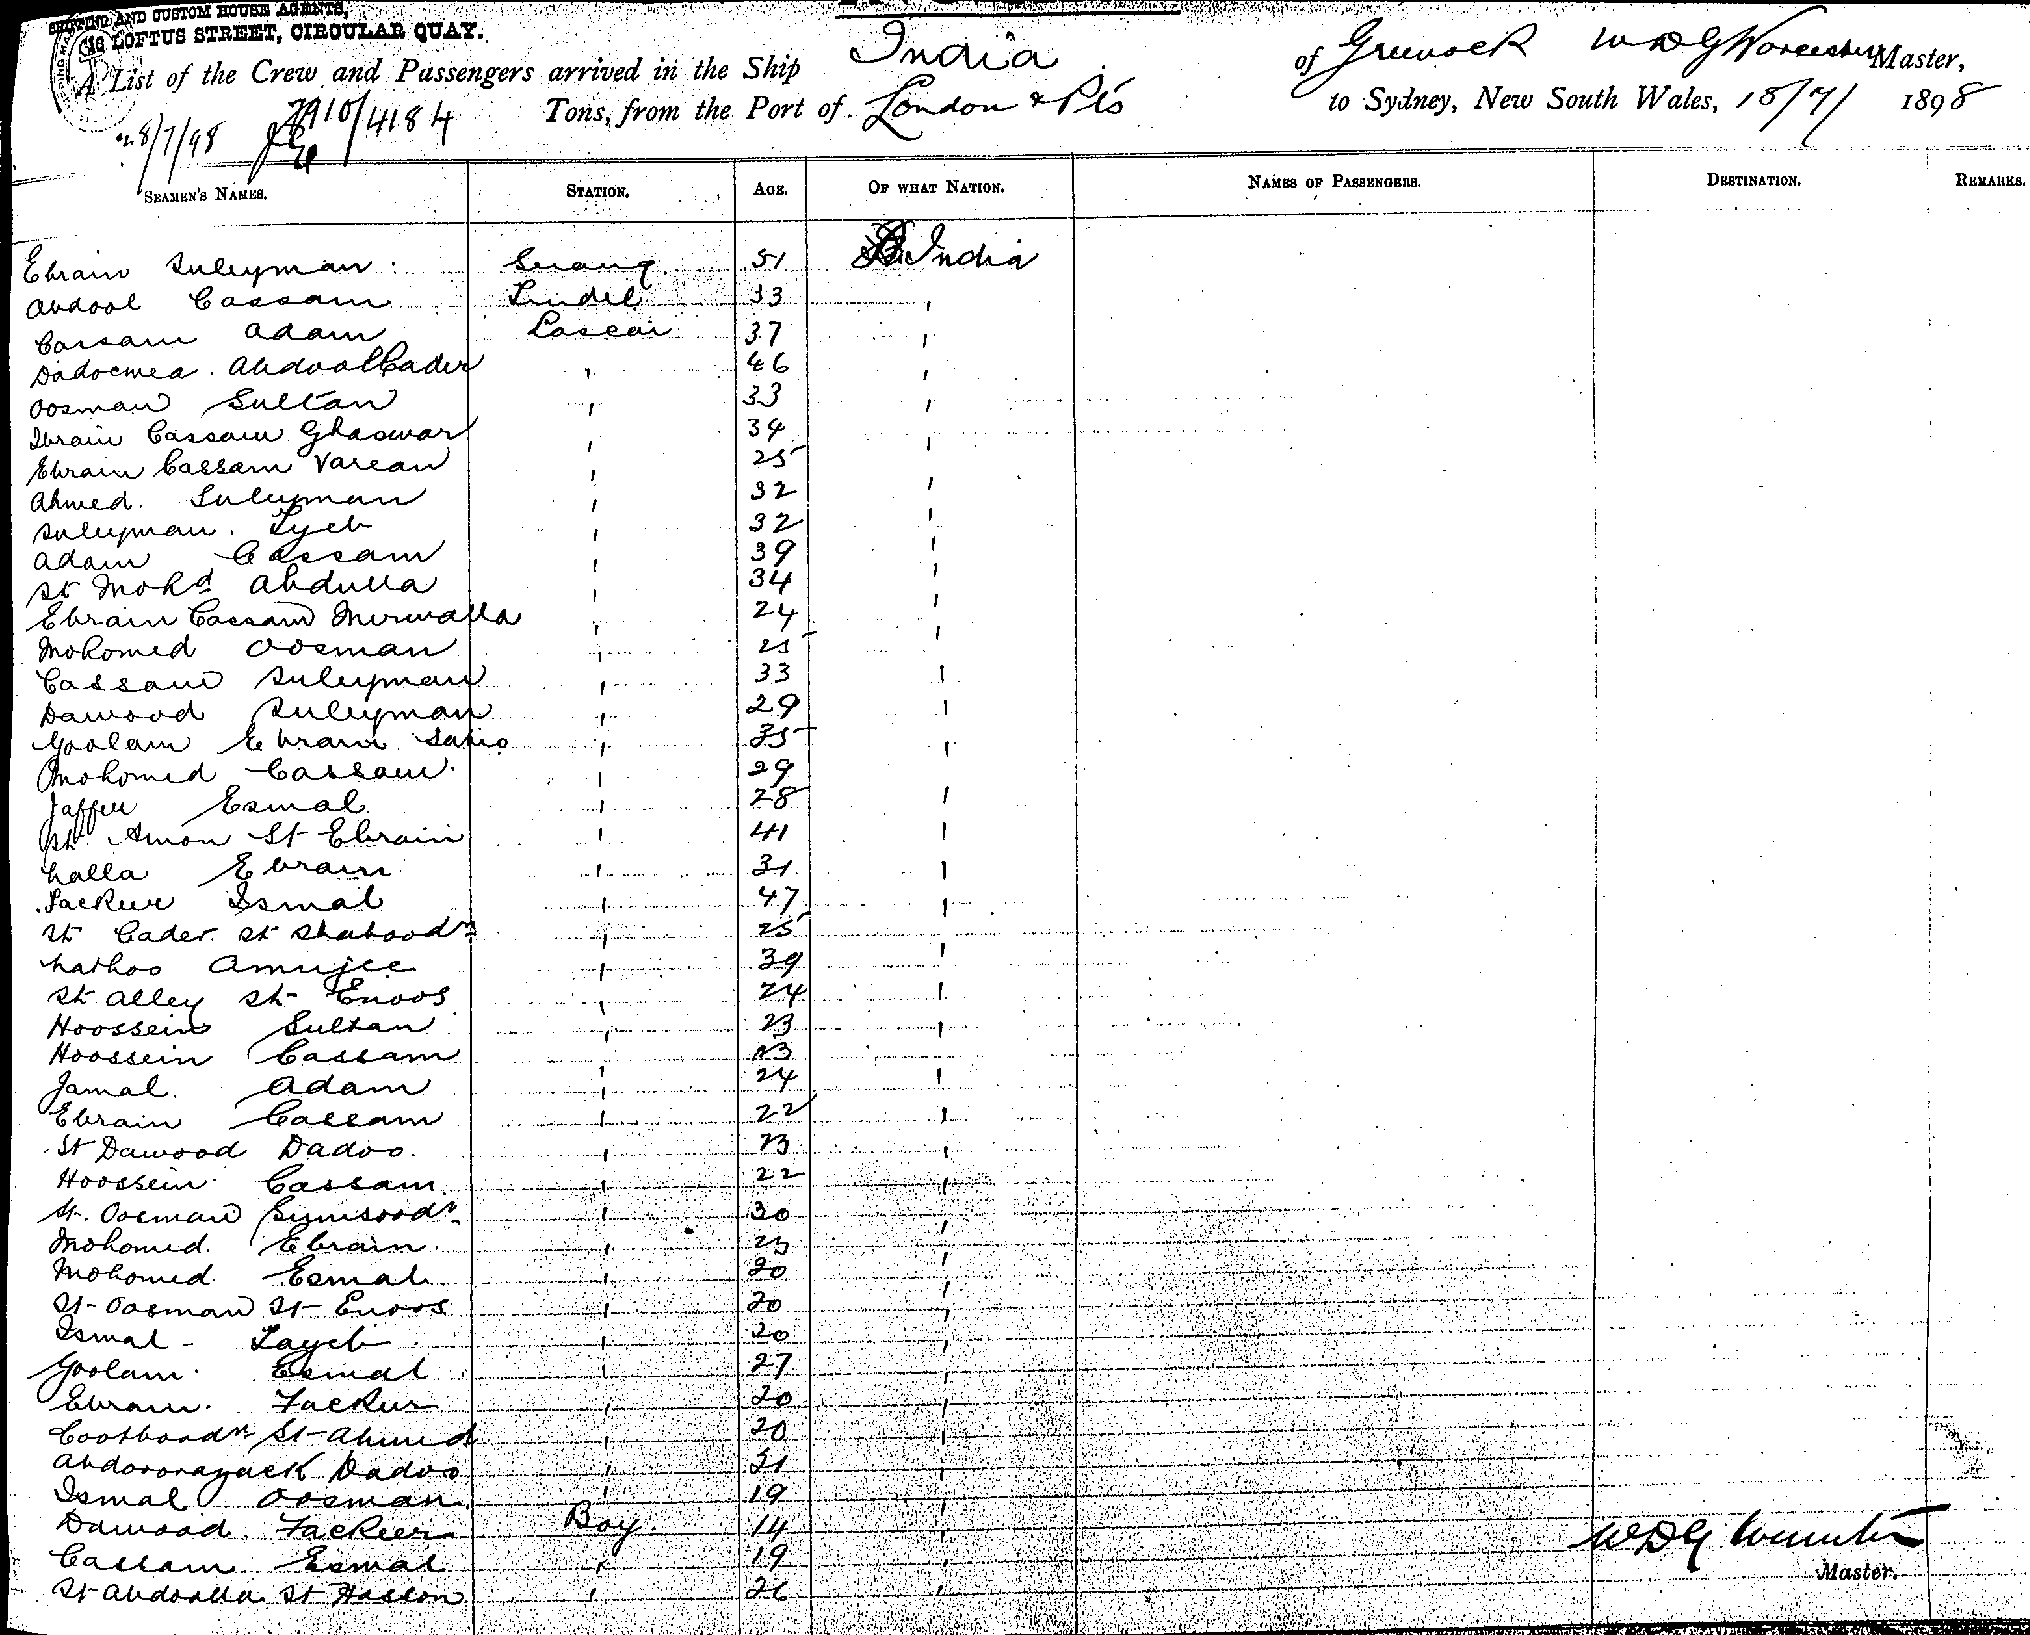 SHIPPING AND CUSTOM HOUSE AGENTS,
16 LOFTUS STREET, CIRCULAR QUAY.
A List of the Crew and Passengers arrived in the Ship India of Greenock W D G Worcester Master,
Tons, from the Port of London & Pts to Sydney, New South Wales, 18/7/ 1898
8/7/98 /4184
SEAMEN'S NAMES. STATION. AGE. OF WHAT NATION. NAMES OF PASSENGERS. DESTINATION. REMARKS.
Ebrain Suleyman Serang 51 India
Abdool Cassam Tindel 33 "
Cassam Adam Lascar 37 "
Dadoemea Abdool Cader " 46 "
Oosman Sultan " 33 "
Ibrain Cassam Ghaswar " 34 "
Ebrain Cassam Varean " 25 "
Ahmed Suleyman " 32 "
Suleyman Tyeb " 32 "
Adam Cassam " 39 "
St Mohd Abdulla " 34 "
Ebrain Cassam Mirwalla " 24 "
Mohomed Oosman " 25 "
Cassam Suleyman " 33 "
Dawood Suleyman " 29 "
Goolam Ebrain " 35 "
Mohomed Cassam " 29 "
Jaffer Esmal " 28 "
St Amon St Ebrain " 41 "
Lalla Ebrain " 31 "
Fackeer Ismal " 47 "
St Cader St Shaboodn " 25 "
Nathoo Amujee " 39 "
St Alley St Enoos " 24 "
Hoossein Sultan " 23 "
Hoossein Cassam " 23 "
Jamal Adam " 24 "
Ebrain Cassam " 22 "
St Dawood Dadoo " 23 "
Hoossein Cassam " 22 "
St Oosman " 30 "
Mohomed Ebrain " 23 "
Mohomed Esmal " 20 "
St Oosman St Enoos " 20 "
Ismal Tayeb " 20 "
Goolam Esmal " 27 "
Ebrain Fackur " 20 "
Cootboodn St Ahmed " 20 "
Abdoorayack Dadoo " 21 "
Ismal Oosman " 19 "
Dawood Fackeer Boy 14 "
Cassam Esmal " 19 "
St Abdoolla St Hasson " 26 "
W D G Worcester
Master.